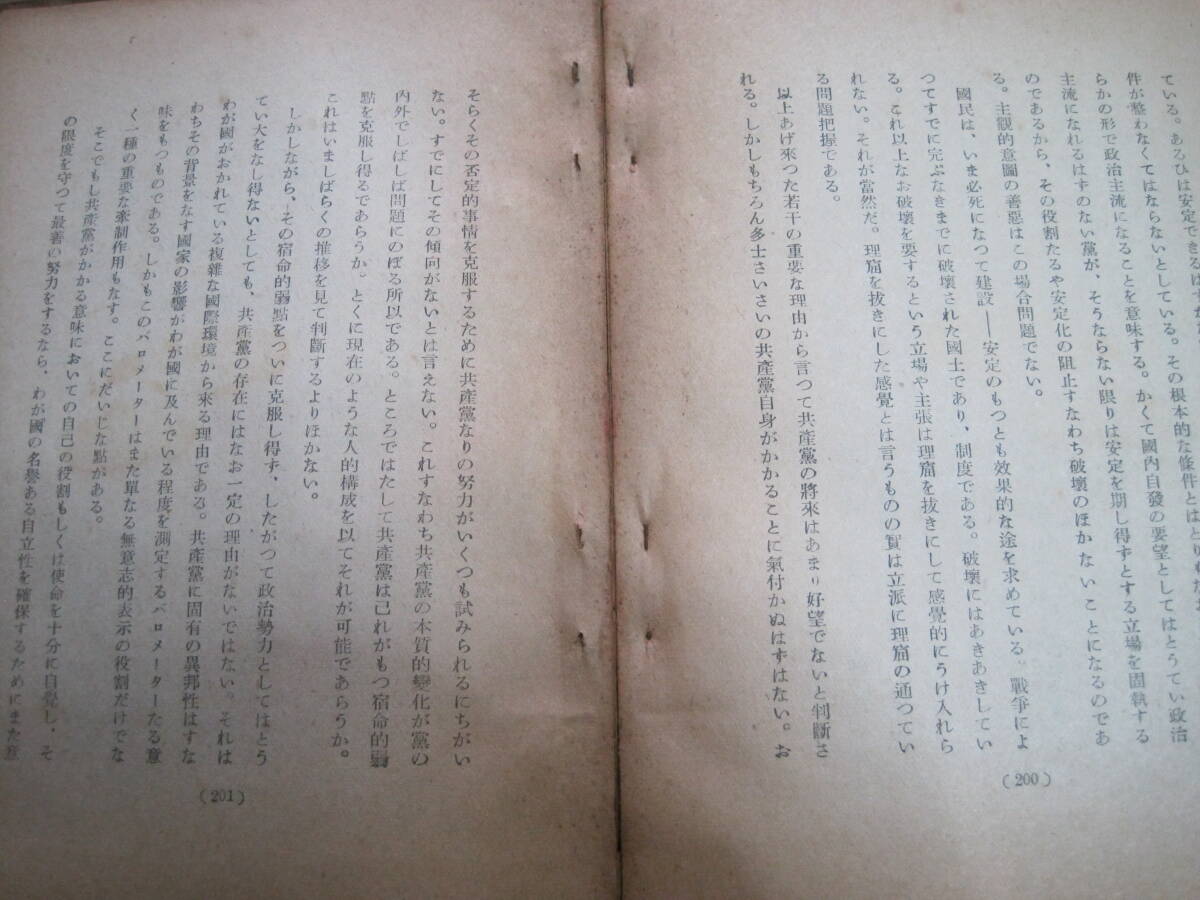 ている。あるひは安定できるはずが
件が整わなくてはならないとしている。その根本的な條件とはとりもなお
らかの形で政治主流になることを意味する。かくて國内自發の要望としてはとうてい政治
主流になれるはずのない黨が、そうならない限りは安定を期し得ずとする立場を固執する
のであるから、その役割たるや安定化の阻止すなわち破壞のほかないことになるのであ
る。主觀的意圖の善惡はこの場合問題でない。
國民は、いま必死になつて建設――安定のもつとも効果的な途を求めている。戰爭によ
つてすでに完ぷなきまでに破壞された國土であり、制度である。破壞にはあきあきしてい
る。これ以上なお破壞を要するという立場や主張は理窟を拔きにして感覺的にうけ入れら
れない。それが當然だ。理窟を拔きにした感覺とは言うものの實は立派に理窟の通つてい
る問題把握である。
以上あげ來つた若干の重要な理由から言つて共產黨の將來はあまり好望でないと判斷さ
れる。しかしもちろん多士さいさいの共產黨自身がかかることに氣付かぬはずはない。お
(200)
そらくその否定的事情を克服するために共產黨なりの努力がいくつも試みられるにちがい
ない。すでにしてその傾向がないとは言えない。これすなわち共產黨の本質的變化が黨の
内外でしばしば問題にのぼる所以である。ところではたして共產黨は己れがもつ宿命的弱
點を克服し得るであらうか。とくに現在のような人的構成を以てそれが可能であらうか。
これはいましばらくの推移を見て判斷するよりほかない。
しかしながら、その宿命的弱點をついに克服し得ず、したがつて政治勢力としてはとう
てい大をなし得ないとしても、共產黨の存在にはなお一定の理由がないではない。それは
わが國がおかれている複雜な國際環境から來る理由である。共產黨に固有の異邦性はすな
わちその背景をなす國家の影響がわが國に及んでいる程度を測定するバロメーターたる意
味をもつものである。しかもこのバロメーターはまた單なる無意志的表示の役割だけでな
く一種の重要な牽制作用もなす。ここにだいじな點がある。
そこでもし共產黨がかかる意味においての自己の役割もしくは使命を十分に自覺し、そ
の限度を守つて最善の努力をするなら、わが國の名譽ある自立性を確保するためにまた意
(201)